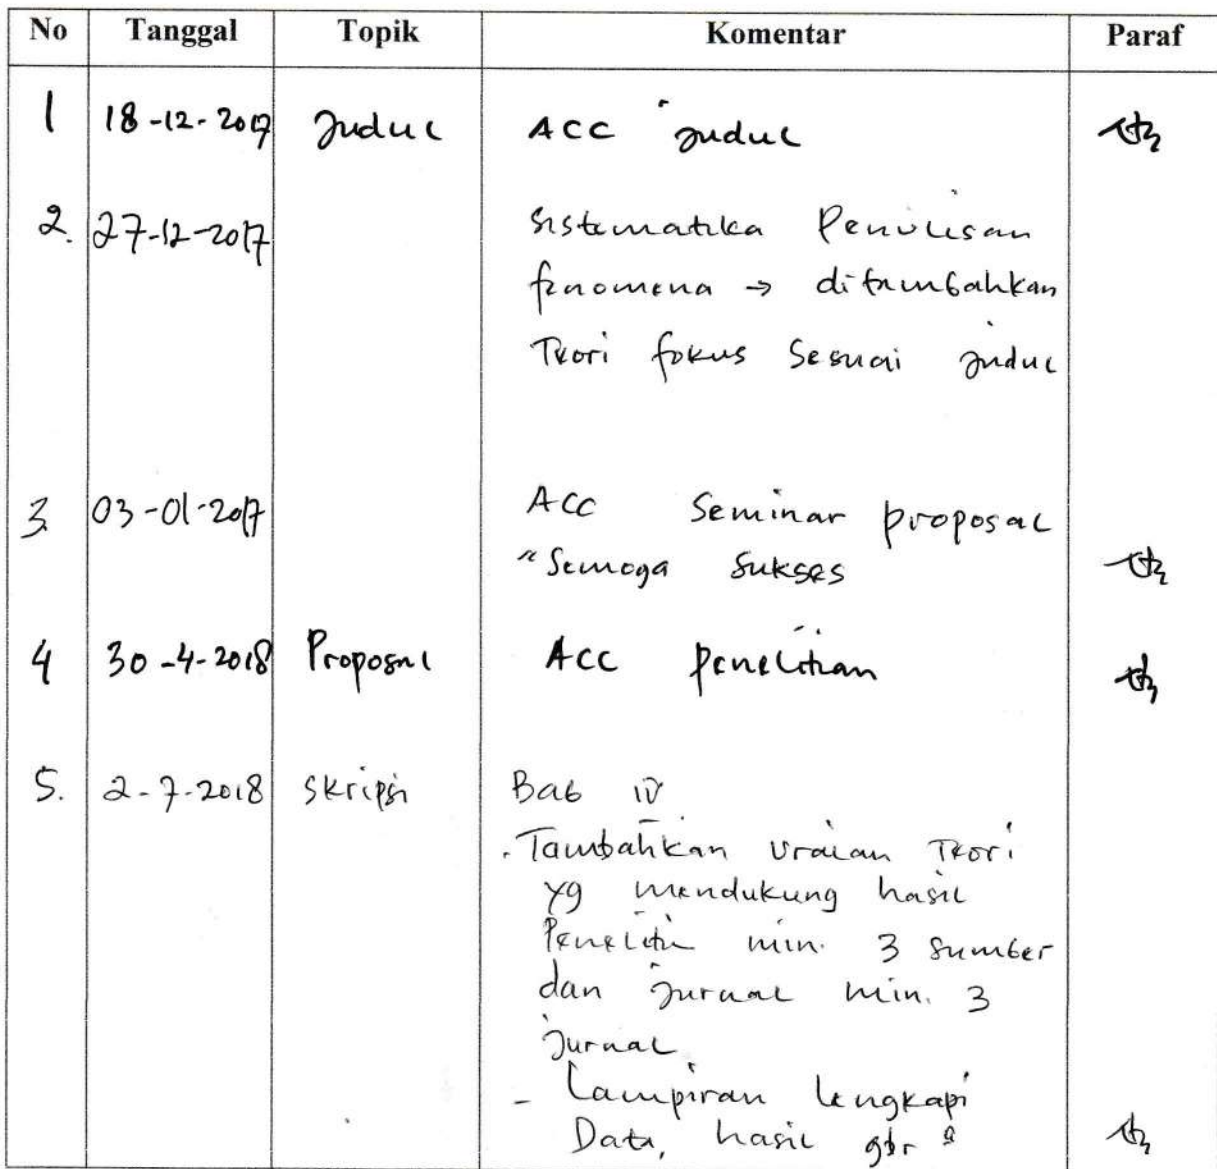 No Tanggal Topik Komentar Paraf
1 18-12-2017 Judul ACC Judul
2. 27-12-2017 Sistematika Penulisan
fenomena → ditambahkan
Teori fokus Sesuai Judul
3. 03-01-2017 ACC Seminar proposal
"Semoga Sukses
4 30-4-2018 Proposal ACC penelitian
5. 2-7-2018 Skripsi Bab IV
- Tambahkan Uraian Teori
yg mendukung hasil
min. 3 Sumber
dan Jurnal min. 3
Jurnal
- Lampiran lengkapi
Data, hasil gbr